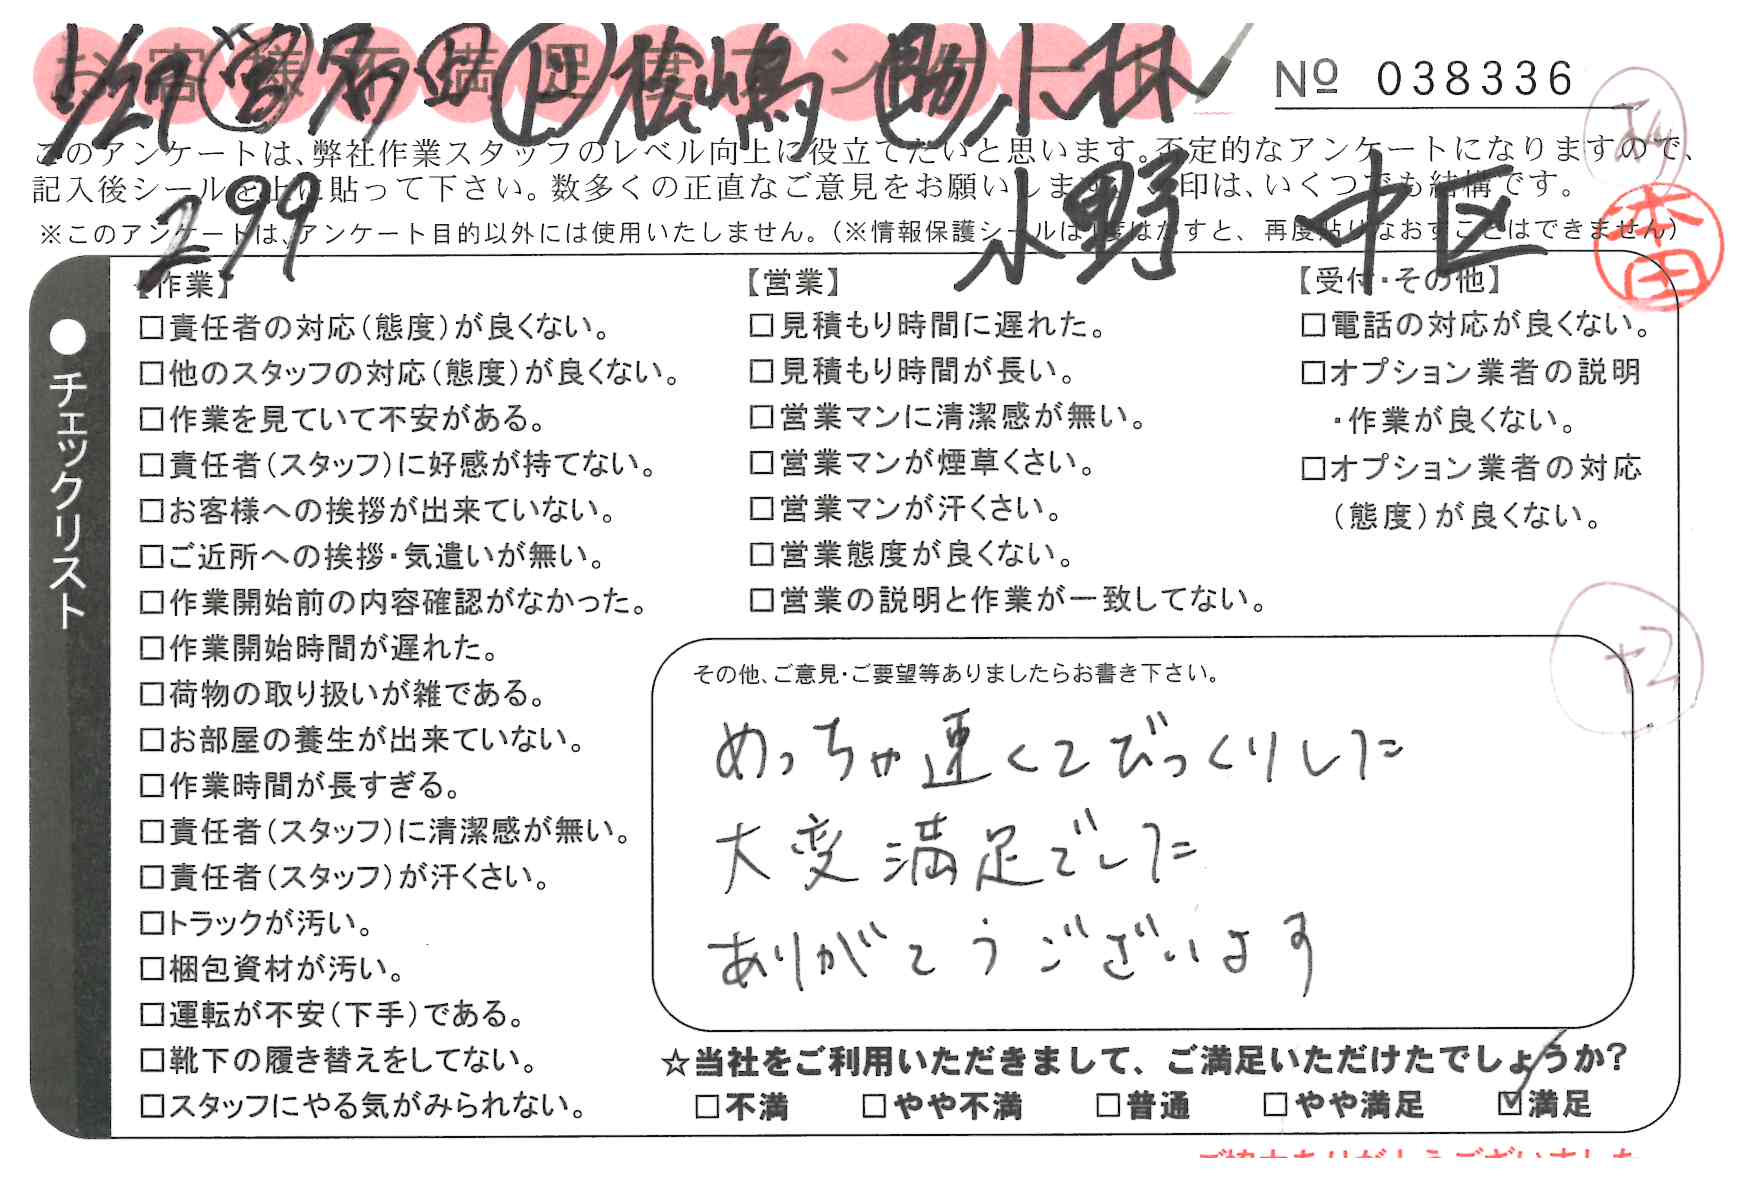 お客様不満足度アンケート
1/27 営 布田 上 桜嶋 助 小林
No 038336
このアンケートは、弊社作業スタッフのレベル向上に役立てたいと思います。否定的なアンケートになりますので、
記入後シールを上に貼って下さい。数多くの正直なご意見をお願いします。 印は、いくつでも結構です。
※このアンケートは、アンケート目的以外には使用いたしません。(※情報保護シールは1度はがすと、再度貼りなおすことはできません)
299 小野 中区
本田
●チェックリスト
【作業】
□責任者の対応(態度)が良くない。
□他のスタッフの対応(態度)が良くない。
□作業を見ていて不安がある。
□責任者(スタッフ)に好感が持てない。
□お客様への挨拶が出来ていない。
□ご近所への挨拶・気遣いが無い。
□作業開始前の内容確認がなかった。
□作業開始時間が遅れた。
□荷物の取り扱いが雑である。
□お部屋の養生が出来ていない。
□作業時間が長すぎる。
□責任者(スタッフ)に清潔感が無い。
□責任者(スタッフ)が汗くさい。
□トラックが汚い。
□梱包資材が汚い。
□運転が不安(下手)である。
□靴下の履き替えをしてない。
□スタッフにやる気がみられない。
【営業】
□見積もり時間に遅れた。
□見積もり時間が長い。
□営業マンに清潔感が無い。
□営業マンが煙草くさい。
□営業マンが汗くさい。
□営業態度が良くない。
□営業の説明と作業が一致してない。
【受付・その他】
□電話の対応が良くない。
□オプション業者の説明
・作業が良くない。
□オプション業者の対応
(態度)が良くない。
+2
その他、ご意見・ご要望等ありましたらお書き下さい。
めっちゃ速くてびっくりした
大変満足でした
ありがとうございます
☆当社をご利用いただきまして、ご満足いただけたでしょうか?
□不満 □やや不満 □普通 □やや満足 ☑満足
ご協力ありがとうございました